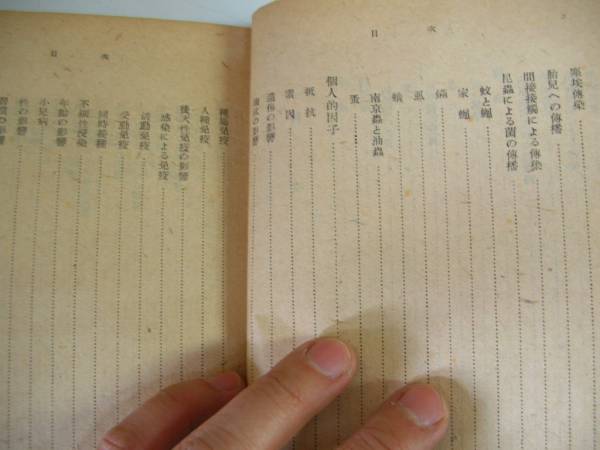 目次
塵埃傳染
胎兒への傳播
間接接觸による傳染
昆蟲による菌の傳播
蚊と蠅
家蠅
虱
蚤
南京蟲と油蟲
個人的因子
抵抗
素因
遺傳の影響
目次
種屬免疫
人種免疫
後天性免疫の影響
感染による免疫
活動免疫
受動免疫
同時接種
不顯性浸染
年齡の影響
小兒病
性の影響
習慣の影響